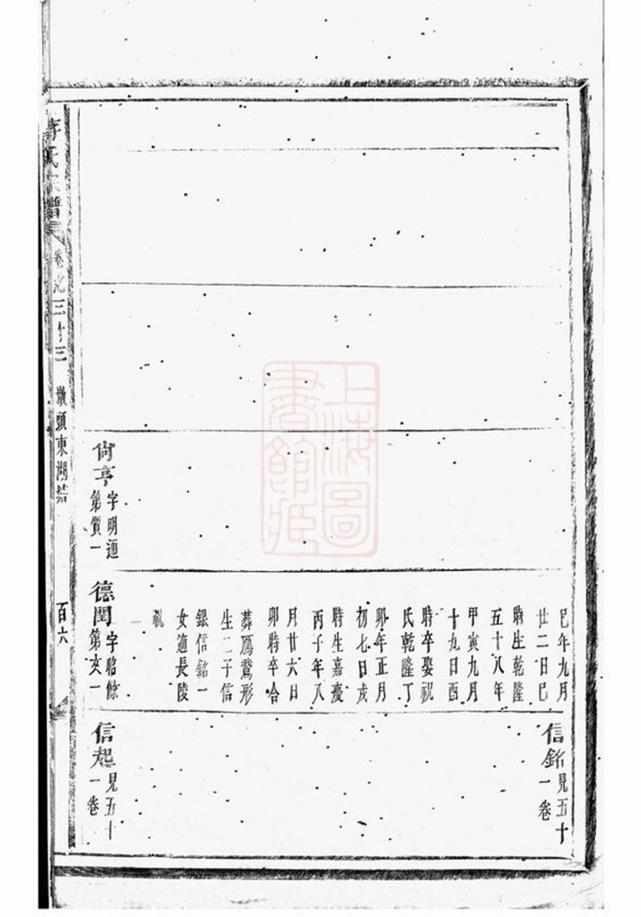 尚亨
字明通
第質一
巳年九月
廿二日巳
時生乾隆
五十八年
甲寅九月
十九日酉
時卒娶祝
氏乾隆丁
卯年正月
初七日戌
時生嘉慶
丙子年八
月廿六日
卯時卒合
葬鴈鵞形
生二子信
銀信銘一
女適長陵
祝
德閏
字昭餘
第亥一
信銘
見五十
一卷
信起
見五十
一卷
氏宗譜
卷之三十三
墩頭東湖
百六
上海圖書館藏